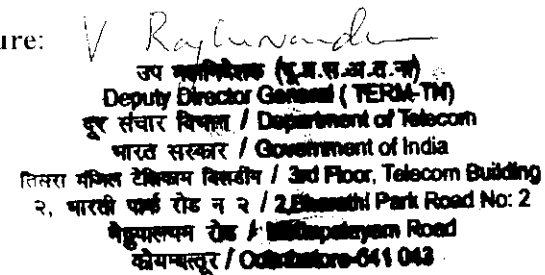 ure: V Raghunandan
उप महानिदेशक (दू.प्र.स.अ.त.ना)
Deputy Director General ( TERM-TN)
दूर संचार विभाग / Department of Telecom
भारत सरकार / Government of India
तिसरा मंजिल टेलिकाम बिल्डींग / 3rd Floor, Telecom Building
२, भारती पार्क रोड न २ / 2,Bharathi Park Road No: 2
रोड / Road
कोयम्बत्तूर / Coimbatore-641 043